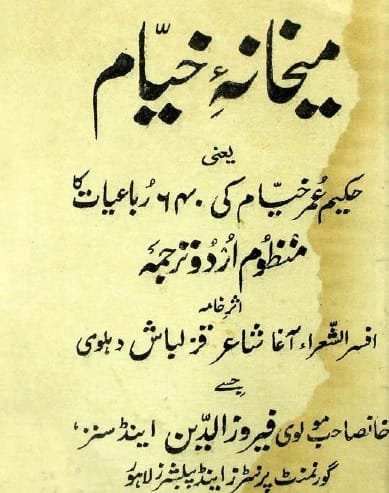 میخانۂ خیّام
یعنی
حکیم عُمر خیّام کی ۶۴۰ رُباعیات کا
منظوم اُردو ترجمہ
اثرِ خامہ
افسر الشّعراء آغا شاعر قزلباش دہلوی
جسے
خانصاحب مولوی فیروز الدّین اینڈ سنز،
گورنمنٹ پرنٹرز اینڈ پبلشرز لاہور